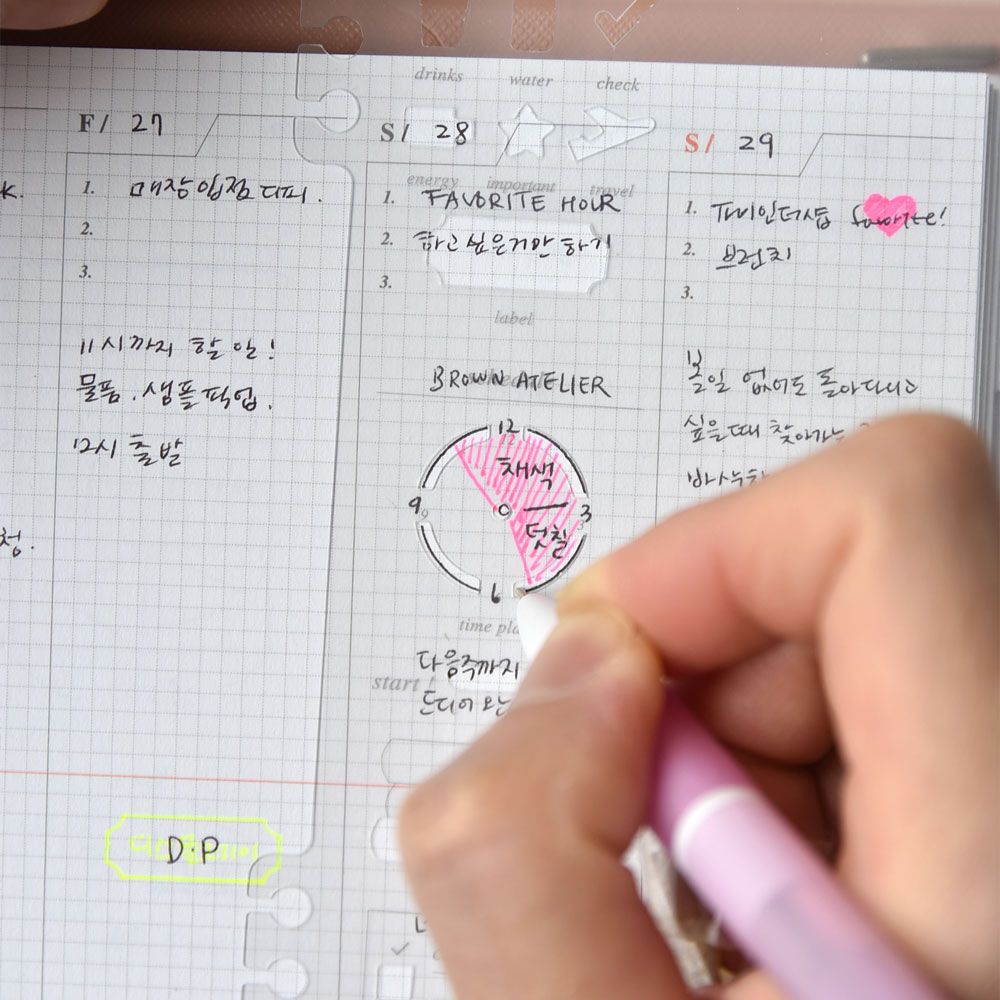 drinks water check
F/ 27
S/ 28
S/ 29
energy important travel
K.
1. 매장입점 디피.
2.
3.
1. FAVORITE HOUR
2. 하고싶은거만 하기
3.
1. favorite!
2. 브런치
3.
label
11시까지 할 일!
물품. 샘플픽업.
12시 출발
청.
BROWN ATELIER
12
12
9
9
0
3
6
채색
덧칠
time pla
다음주까지
드디어 오는
start
볼일 없어도 돌아다니고
싶을때 찾아가는
D.P